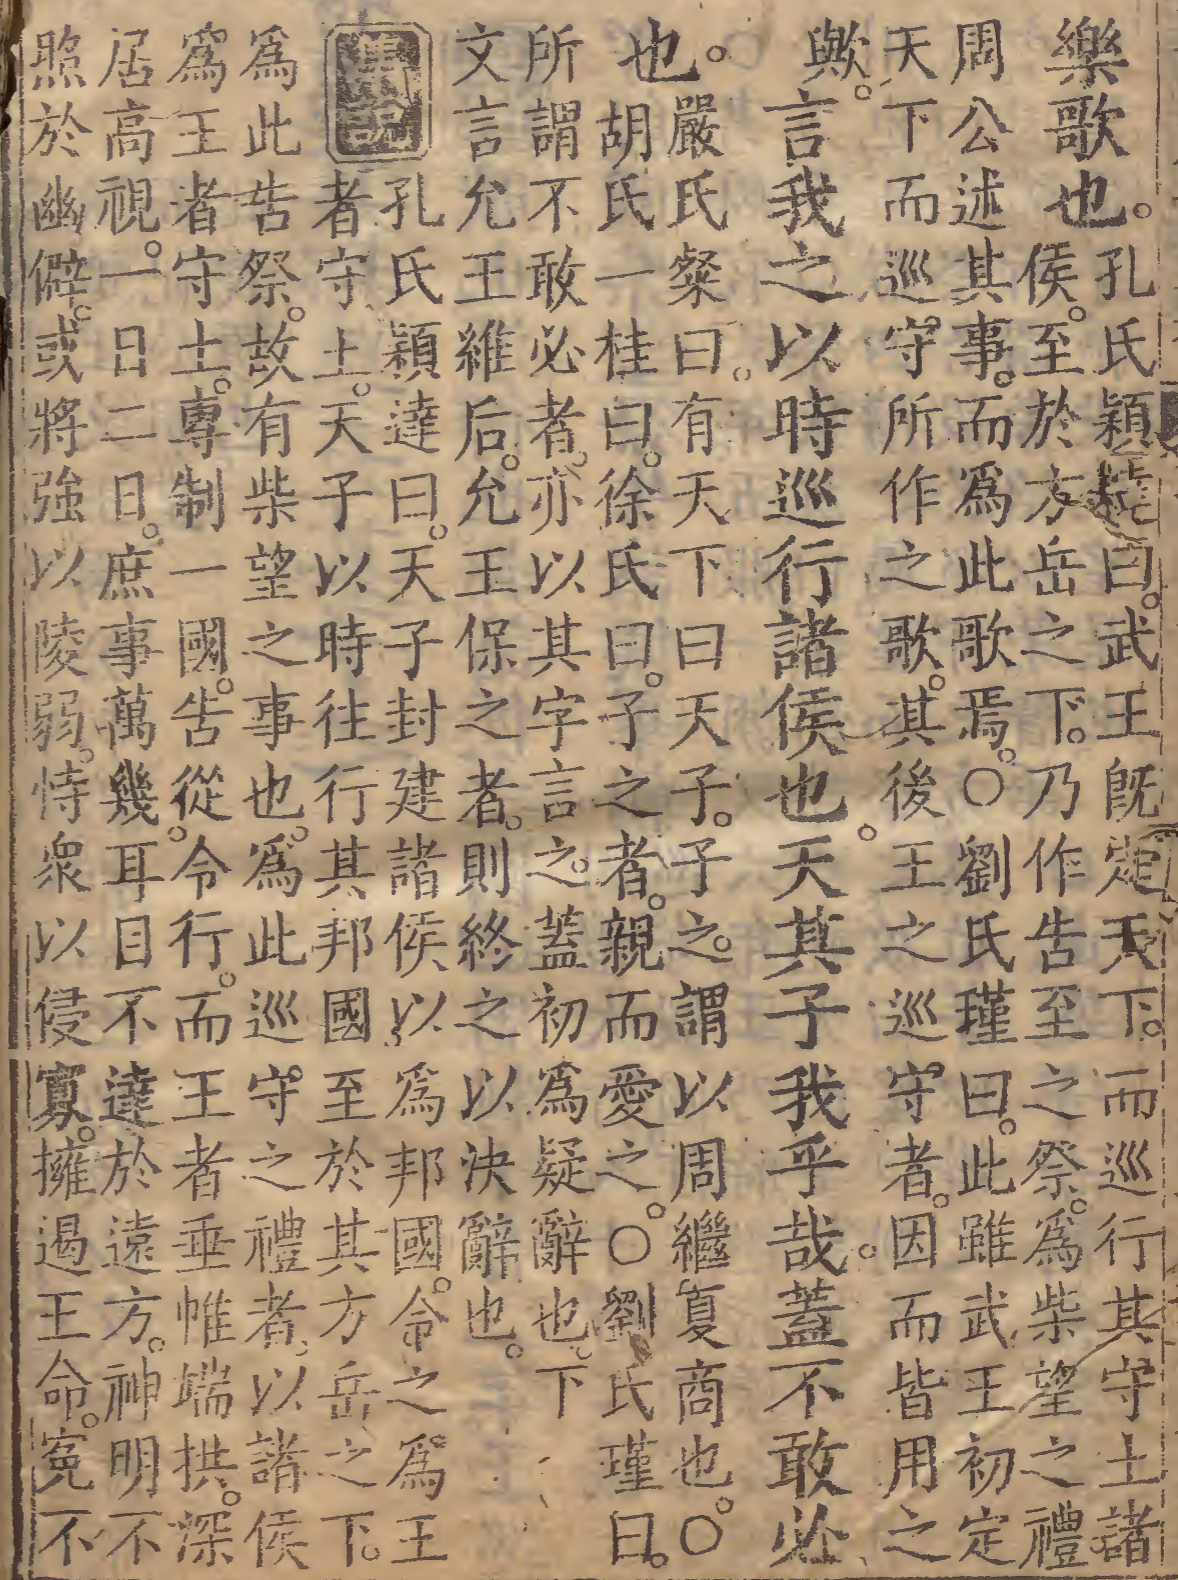 樂歌也。孔氏穎達曰。武王既定天下。而巡行其守土諸
侯。至於方岳之下。乃作告至之祭。爲柴望之禮
周公述其事。而爲此歌焉。○劉氏瑾曰。此雖武王初定
天下而巡守所作之歌。其後王之巡守者。因而皆用之
歟。言我之以時巡行諸侯也。天其子我乎哉。蓋不敢必
也。嚴氏粲曰。有天下曰天子。子之。謂以周繼夏商也。○
胡氏一桂曰。徐氏曰。子之者。親而愛之。○劉氏瑾曰。
所謂不敢必者。亦以其字言之。蓋初爲疑辭也。下
文言允王維后。允王保之者。則終之以決辭也。
集說
孔氏穎達曰。天子封建諸侯。以爲邦國。令之爲王
者守土。天子以時往行其邦國。至於其方岳之下。
爲此告祭。故有柴望之事也。爲此巡守之禮者。以諸侯
爲王者守土。專制一國。告從令行。而王者垂帷端拱。深
居高視。一日二日。庶事萬幾。耳目不達於遠方。神明不
照於幽僻。或將強以陵弱。恃衆以侵寡。擁遏王命。冤不